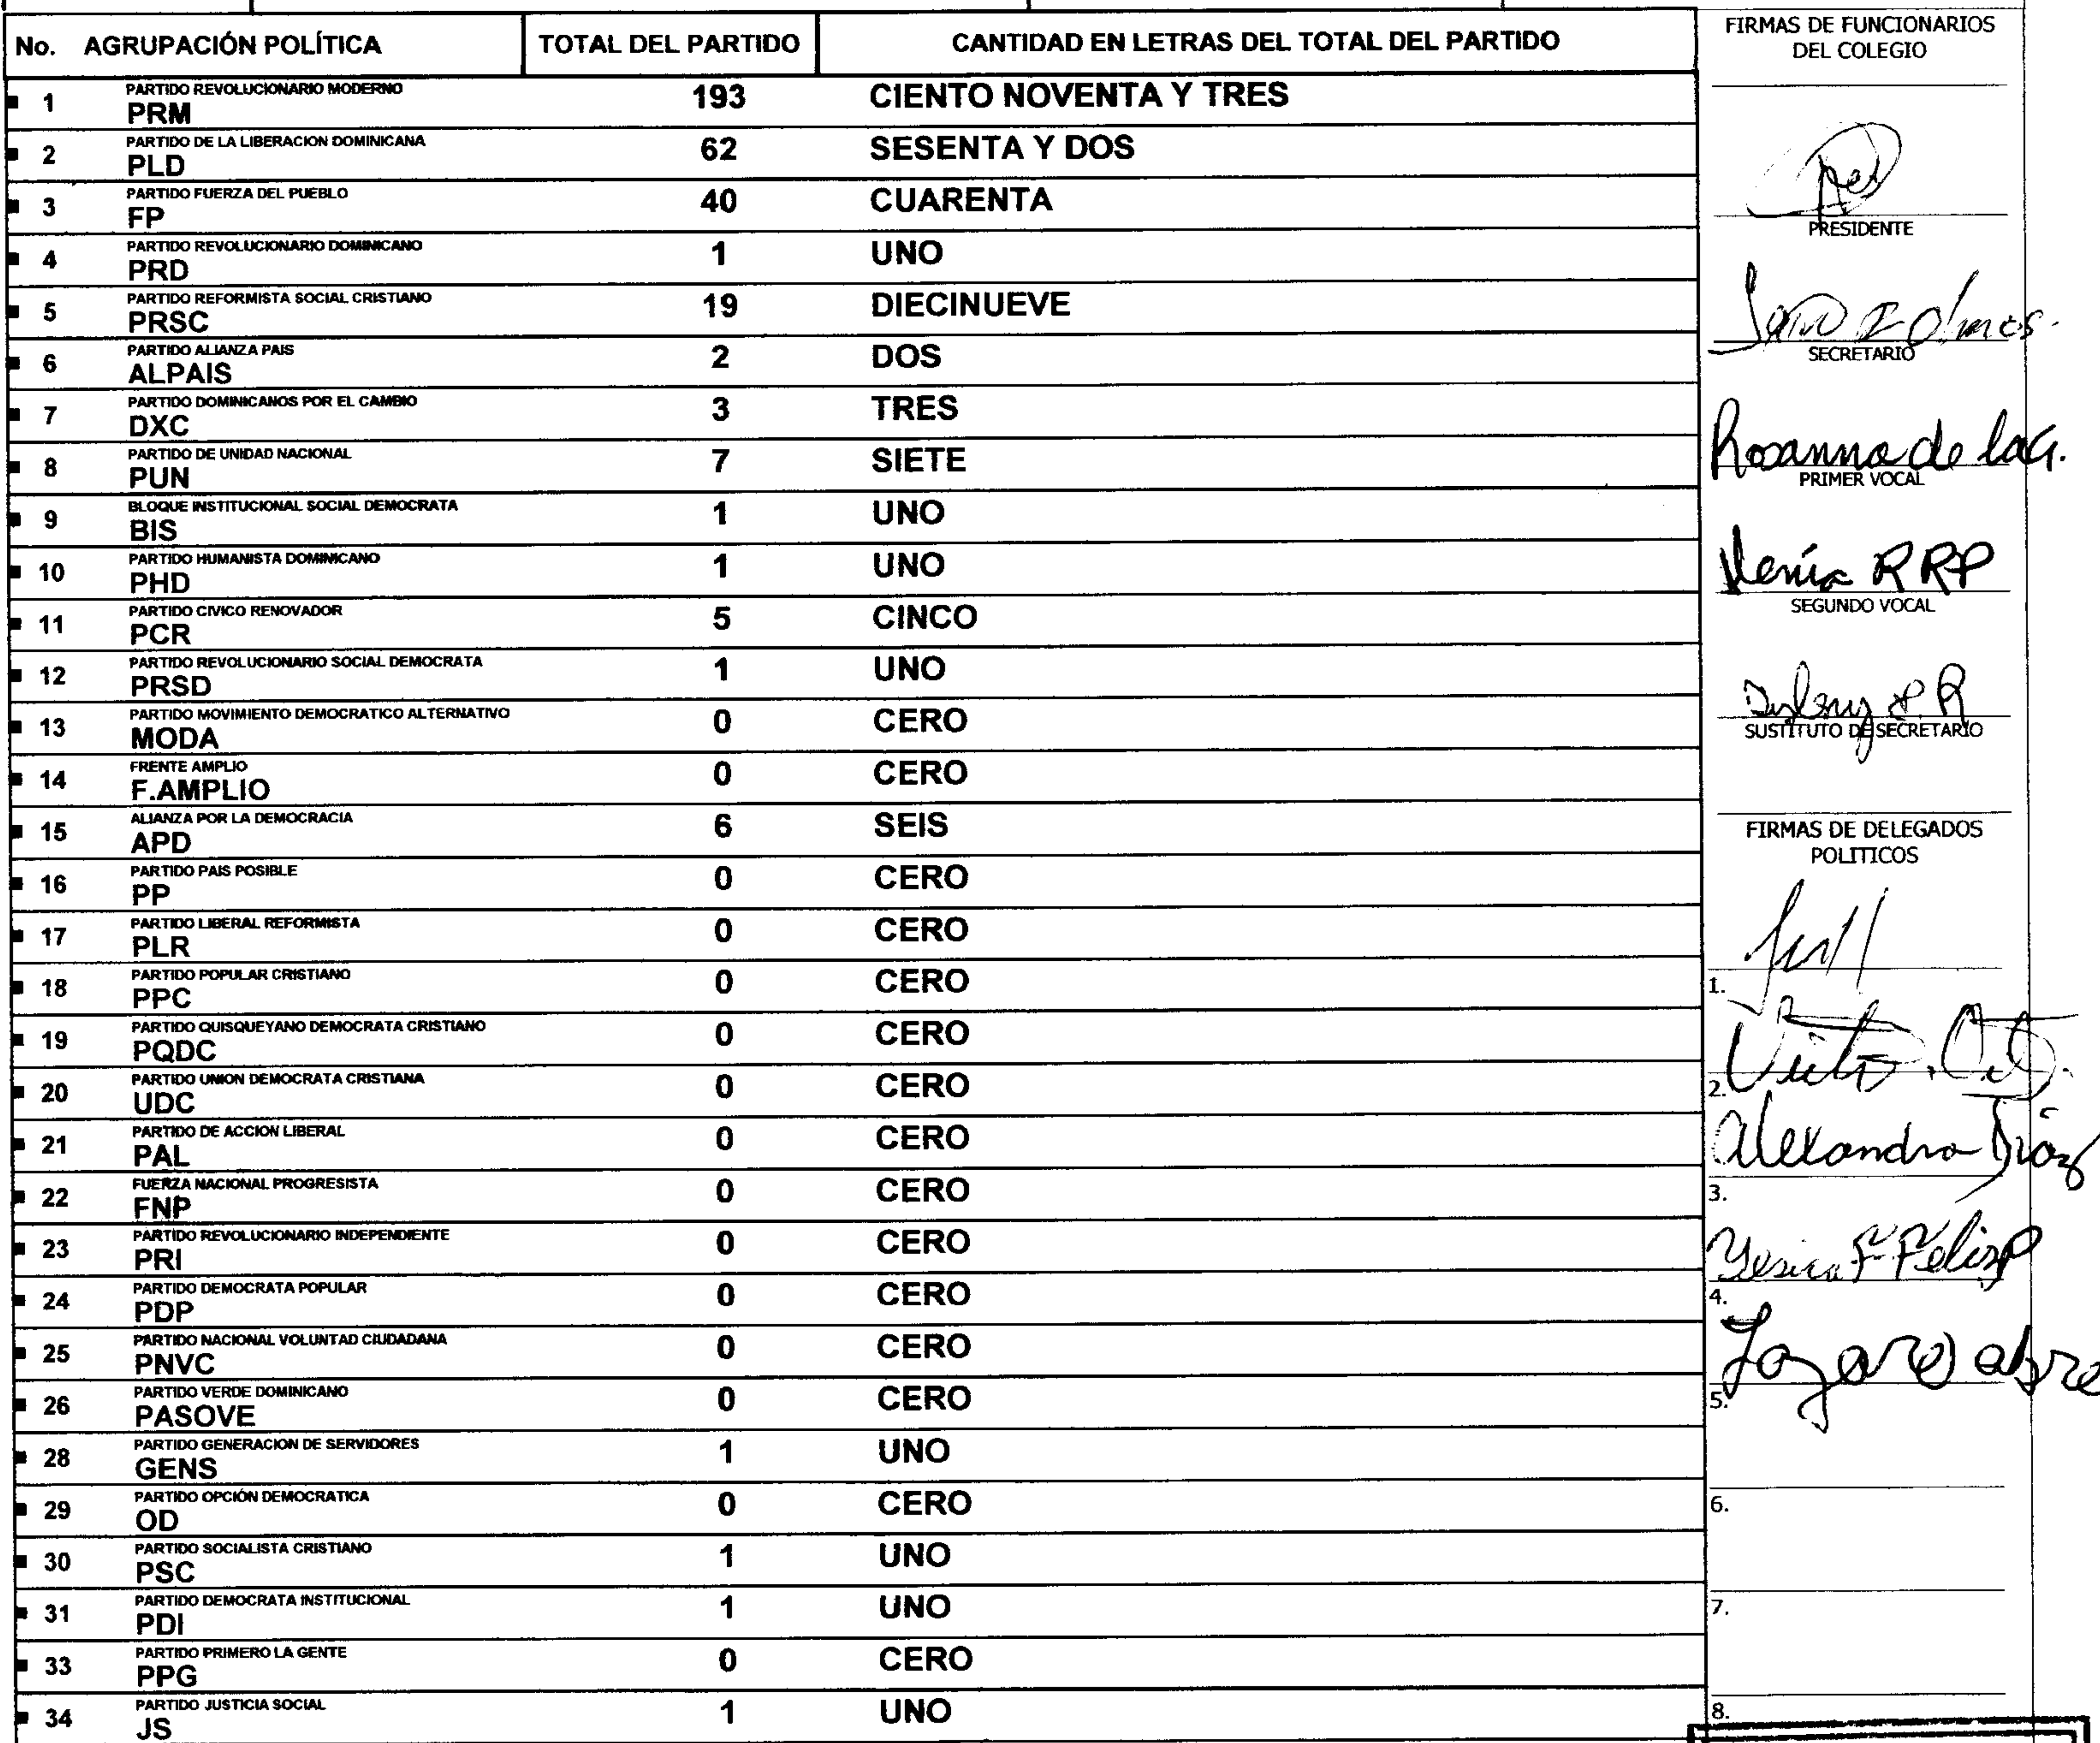 No. AGRUPACIÓN POLÍTICA TOTAL DEL PARTIDO CANTIDAD EN LETRAS DEL TOTAL DEL PARTIDO
PARTIDO REVOLUCIONARIO MODERNO
1 PRM 193 CIENTO NOVENTA Y TRES
PARTIDO DE LA LIBERACION DOMINICANA
2 PLD 62 SESENTA Y DOS
PARTIDO FUERZA DEL PUEBLO
3 FP 40 CUARENTA
PARTIDO REVOLUCIONARIO DOMINICANO
4 PRD 1 UNO
PARTIDO REFORMISTA SOCIAL CRISTIANO
5 PRSC 19 DIECINUEVE
PARTIDO ALIANZA PAIS
6 ALPAIS 2 DOS
PARTIDO DOMINICANOS POR EL CAMBIO
7 DXC 3 TRES
PARTIDO DE UNIDAD NACIONAL
8 PUN 7 SIETE
BLOQUE INSTITUCIONAL SOCIAL DEMOCRATA
9 BIS 1 UNO
PARTIDO HUMANISTA DOMINICANO
10 PHD 1 UNO
PARTIDO CIVICO RENOVADOR
11 PCR 5 CINCO
PARTIDO REVOLUCIONARIO SOCIAL DEMOCRATA
12 PRSD 1 UNO
PARTIDO MOVIMIENTO DEMOCRATICO ALTERNATIVO
13 MODA 0 CERO
FRENTE AMPLIO
14 F.AMPLIO 0 CERO
ALIANZA POR LA DEMOCRACIA
15 APD 6 SEIS
PARTIDO PAIS POSIBLE
16 PP 0 CERO
PARTIDO LIBERAL REFORMISTA
17 PLR 0 CERO
PARTIDO POPULAR CRISTIANO
18 PPC 0 CERO
PARTIDO QUISQUEYANO DEMOCRATA CRISTIANO
19 PQDC 0 CERO
PARTIDO UNION DEMOCRATA CRISTIANA
20 UDC 0 CERO
PARTIDO DE ACCION LIBERAL
21 PAL 0 CERO
FUERZA NACIONAL PROGRESISTA
22 FNP 0 CERO
PARTIDO REVOLUCIONARIO INDEPENDIENTE
23 PRI 0 CERO
PARTIDO DEMOCRATA POPULAR
24 PDP 0 CERO
PARTIDO NACIONAL VOLUNTAD CIUDADANA
25 PNVC 0 CERO
PARTIDO VERDE DOMINICANO
26 PASOVE 0 CERO
PARTIDO GENERACION DE SERVIDORES
28 GENS 1 UNO
PARTIDO OPCIÓN DEMOCRATICA
29 OD 0 CERO
PARTIDO SOCIALISTA CRISTIANO
30 PSC 1 UNO
PARTIDO DEMOCRATA INSTITUCIONAL
31 PDI 1 UNO
PARTIDO PRIMERO LA GENTE
33 PPG 0 CERO
PARTIDO JUSTICIA SOCIAL
34 JS 1 UNO
FIRMAS DE FUNCIONARIOS
DEL COLEGIO
PRESIDENTE
SECRETARIO
Rosanna de la G.
PRIMER VOCAL
RRP
SEGUNDO VOCAL
SUSTITUTO DE SECRETARIO
FIRMAS DE DELEGADOS
POLITICOS
1.
2.
Alexandra Diaz
3.
Yesica F Feliz
4.
5.
6.
7.
8.